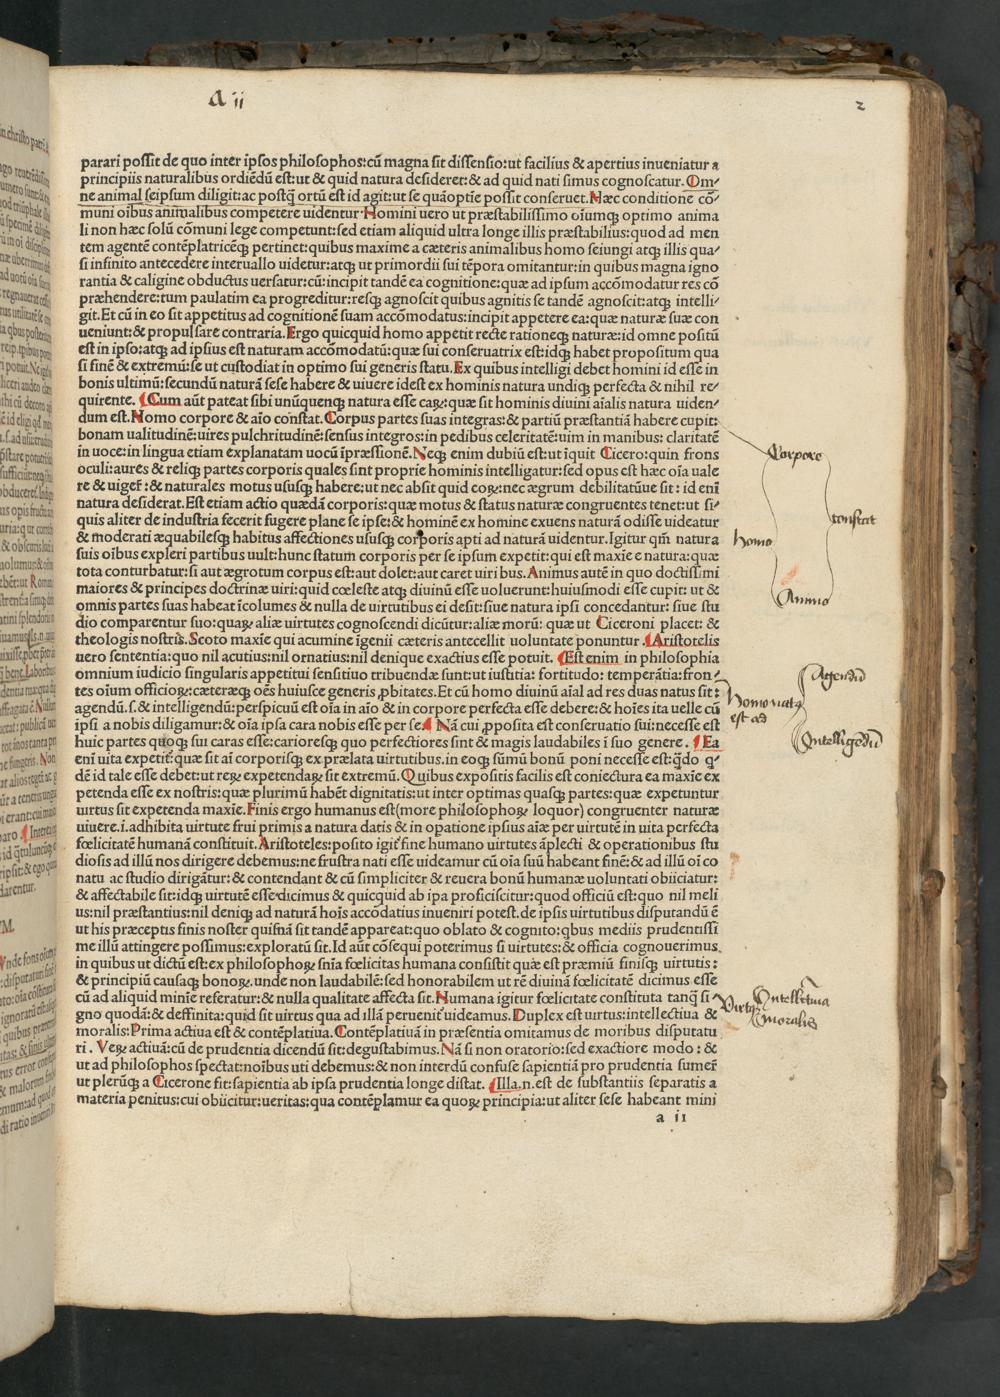 A ii
2
parari possit de quo inter ipsos philosophos:cũ magna sit dissensio:ut facilius & apertius inueniatur a
principiis naturalibus ordiẽdũ est:ut & quid natura desideret:& ad quid nati simus cognoscatur. Om⸗
ne animal seipsum diligit:ac postq̃ ortũ est id agit:ut se quãoptie possit conseruet. Næc conditione cõ⸗
muni oĩbus animalibus competere uidentur. Homini uero ut præstabilissimo oĩumq; optimo anima
li non hæc solũ cõmuni lege competunt:sed etiam aliquid ultra longe illis præstabilius:quod ad men
tem agentẽ contẽplatricẽq; pertinet:quibus maxime a cæteris animalibus homo seiungi atq; illis qua⸗
si infinito antecedere interuallo uidetur:atq; ut primordii sui tẽpora omitantur:in quibus magna igno
rantia & caligine obductus uersatur:cũ:incipit tandẽ ea cognitione:quæ ad ipsum accõmodatur res cõ
præhendere:tum paulatim ea progreditur:resq; agnoscit quibus agnitis se tandẽ agnoscit:atq; intelli⸗
git. Et cũ in eo sit appetitus ad cognitionẽ suam accõmodatus:incipit appetere ea:quæ naturæ suæ con
ueniunt:& propulsare contraria. Ergo quicquid homo appetit recte rationeq; naturæ:id omne positũ
est in ipso:atq; ad ipsius est naturam accõmodatũ:quæ sui conseruatrix est:idq; habet propositum qua
si finẽ & extremũ:se ut custodiat in optimo sui generis statu. Ex quibus intelligi debet homini id esse in
bonis ultimũ:secundũ naturã sese habere & uiuere idest ex hominis natura undiq; perfecta & nihil re⸗
quirente. ¶Cum aũt pateat sibi unũquenq; natura esse caꝝ:quæ sit hominis diuini aĩalis natura uiden⸗
dum est. Nomo corpore & aĩo constat. Corpus partes suas integras:& partiũ præstantiã habere cupit:
bonam ualitudinẽ:uires pulchritudinẽ:sensus integros:in pedibus celeritatẽ:uim in manibus: claritatẽ
in uoce:in lingua etiam explanatam uocũ ĩpræssionẽ. Neq; enim dubiũ est:ut ĩquit Cicero:quin frons
oculi:aures & reliq; partes corporis quales sint proprie hominis intelligatur:sed opus est hæc oĩa uale
re & uigeř:& naturales motus ususq; habere:ut nec absit quid eoꝝ:nec ægrum debilitatũue sit: id enĩ
natura desiderat. Est etiam actio quædã corporis:quæ motus & status naturæ congruentes tenet:ut si⸗
quis aliter de industria fecerit fugere plane se ipse:& hominẽ ex homine exuens naturã odisse uideatur
& moderati æquabilesq; habitus affectiones ususq; corporis apti ad naturã uidentur. Igitur qm̃ natura
suis oĩbus expleri partibus uult:hunc statum corporis per se ipsum expetit:qui est maxĩe e natura:quæ
tota conturbatur:si aut ægrotum corpus est:aut dolet:aut caret uiribus. Animus autẽ in quo doctissimi
maiores & principes doctrinæ uiri:quid cœleste atq; diuinũ esse uoluerunt:huiusmodi esse cupit: ut &
omnis partes suas habeat ĩcolumes & nulla de uirtutibus ei desit:siue natura ipsi concedantur: siue stu
dio comparentur suo:quaꝝ aliæ uirtutes cognoscendi dicũtur:aliæ morũ: quæ ut Ciceroni placet: &
theologis nostris. Scoto maxĩe qui acumine ĩgenii cæteris antecellit uoluntate ponuntur. ¶Aristotelis
uero sententia:quo nil acutius:nil ornatius:nil denique exactius esse potuit. ¶Est enim in philosophia
omnium iudicio singularis appetitui sensitiuo tribuendæ sunt:ut iustitia: fortitudo: temperãtia:fron⸗
tes oĩum officioꝝ:cæteræq; oẽs huiusce generis ꝓbitates. Et cũ homo diuinũ aĩal ad res duas natus sit:
agendũ.s.& intelligendũ:perspicuũ est oĩa in aĩo & in corpore perfecta esse debere:& hoĩes ita uelle cũ
ipsi a nobis diligamur:& oĩa ipsa cara nobis esse per se.¶ Nã cui ꝓposita est conseruatio sui:necesse est
huic partes quoq; sui caras esse:carioresq; quo perfectiores sint & magis laudabiles ĩ suo genere. ¶Ea
enĩ uita expetit̃:quæ sit aĩ corporisq; ex prælata uirtutibus.in eoq; sũmũ bonũ poni necesse est:q̃do q⸗
dẽ id tale esse debet:ut reꝝ expetendaꝝ sit extremũ. Quibus expositis facilis est coniectura ea maxĩe ex
petenda esse ex nostris:quæ plurimũ habẽt dignitatis:ut inter optimas quasq; partes:quæ expetuntur
uirtus sit expetenda maxĩe. Finis ergo humanus est(more philosophoꝝ loquor) congruenter naturæ
uiuere.i.adhibita uirtute frui primis a natura datis & in opatione ipsius aĩæ per uirtutẽ in uita perfecta
fœlicitatẽ humanã constituit. Aristoteles:posito igit̃ fine humano uirtutes ãplecti & operationibus stu
diosis ad illũ nos dirigere debemus:ne frustra nati esse uideamur cũ oĩa suũ habeant finẽ:& ad illũ oĩ co
natu ac studio dirigãtur:& contendant & cũ simpliciter & reuera bonũ humanæ uoluntati obiiciatur:
& affectabile sit:idq; uirtutẽ esse dicimus & quicquid ab ipa proficiscitur:quod officiũ est:quo nil meli
us:nil præstantius:nil deniq; ad naturã hoĩs accõdatius inueniri potest.de ipsis uirtutibus disputandũ ẽ
ut his præceptis finis noster quisnã sit tandẽ appareat:quo oblato & cognito:qbus mediis prudentissi
me illũ attingere possimus:exploratũ sit. Id aũt cõsequi poterimus si uirtutes:& officia cognouerimus.
in quibus ut dictũ est:ex philosophoꝝ snĩa fœlicitas humana consistit quæ est præmiũ finisq; uirtutis:
& principiũ causaq; bonoꝝ.unde non laudabilẽ:sed honorabilem ut rẽ diuinã fœlicitatẽ dicimus esse
cũ ad aliquid minĩe referatur:& nulla qualitate affecta sit. Numana igitur fœlicitate constituta tanq̃ si
gno quodã:& deffinita:quid sit uirtus qua ad illã peruenit̃ uideamus. Duplex est uirtus:intellectiua &
moralis:Prima actiua est & contẽplatiua. Contẽplatiuã in præsentia omitamus de moribus disputatu
ri. Veꝝ actiuã:cũ de prudentia dicendũ sit:degustabimus. Nã si non oratorio:sed exactiore modo: &
ut ad philosophos spectat:noĩbus uti debemus:& non interdũ confuse sapientiã pro prudentia sumeř
ut plerũq; a Cicerone fit:sapientia ab ipsa prudentia longe distat. ¶Illa.n.est de substantiis separatis a
materia penitus:cui obiicitur:ueritas:qua contẽplamur ea quoꝝ principia:ut aliter sese habeant mini
a ii
Corpore
homo
constat
Animo
Agendũ
homo natꝰ
est ad
Intelligẽdũ
Virtus
Intellectiua
moralis